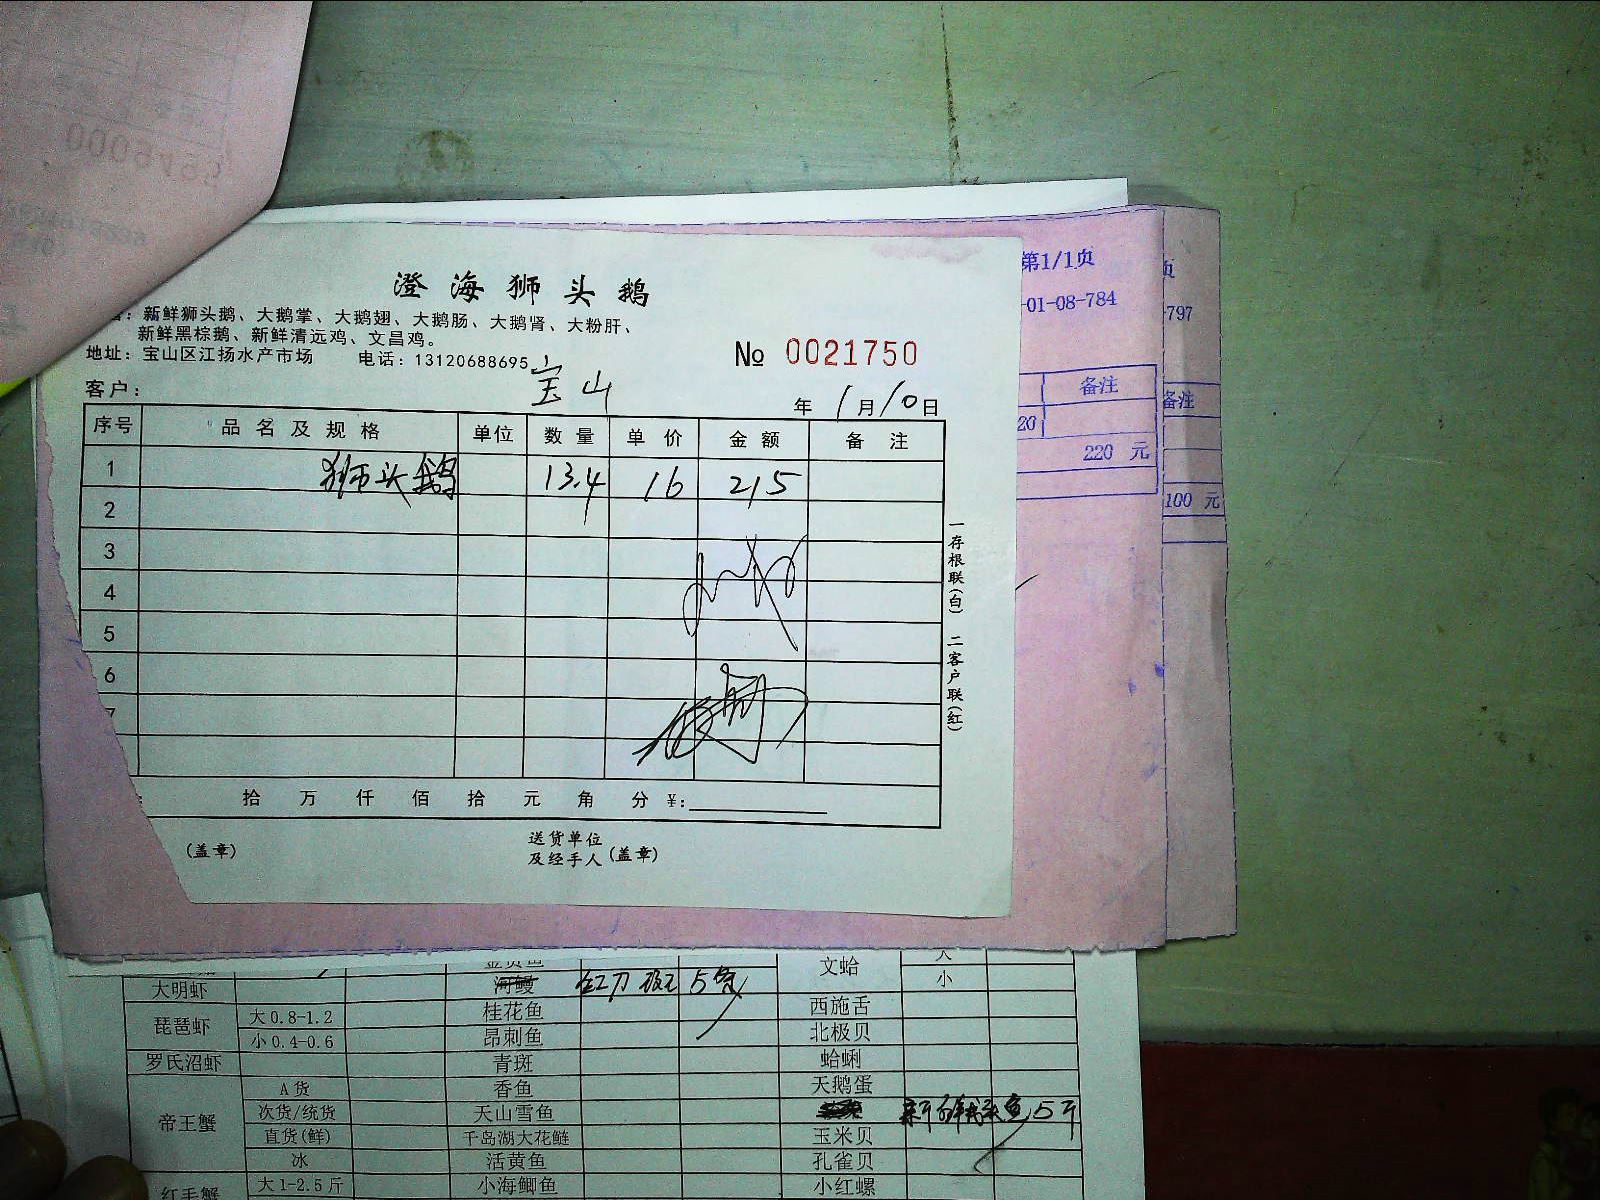 澄海狮头鹅
新鲜狮头鹅、大鹅掌、大鹅翅、大鹅肠、大鹅肾、大粉肝、
新鲜黑棕鹅、新鲜清远鸡、文昌鸡。
地址：宝山区江扬水产市场 电话：13120688695
№ 0021750
客户： 宝山
年 1月10日
序号 品名及规格 单位 数量 单价 金额 备注
1 狮头鹅 13.4 16 215
2
3
4
5
6
7
拾 万 仟 佰 拾 元 角 分 ¥：
（盖章）
送货单位
及经手人（盖章）
一存根联（白） 二客户联（红）
第1/1页
-01-08-784
备注
20
220 元
页
-797
备注
100 元
文蛤 大
大明虾 河鳗 5 小
琵琶虾 大0.8-1.2 桂花鱼 西施舌
小0.4-0.6 昂刺鱼 北极贝
罗氏沼虾 青斑 蛤蜊
帝王蟹 A货 香鱼 天鹅蛋
次货/统货 天山雪鱼 5斤
直货(鲜) 千岛湖大花鲢 玉米贝
冰 活黄鱼 孔雀贝
红毛蟹 大1-2.5斤 小海鲫鱼 小红螺